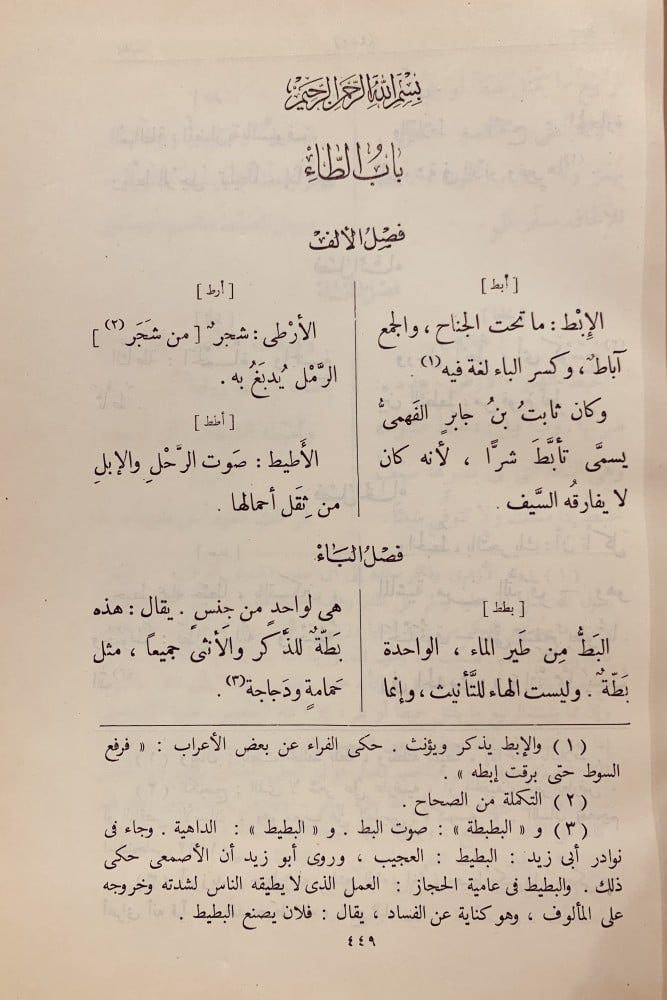 بسم الله الرحمن الرحيم
باب الطاء
فصل الألف
[ أبط ]
الإبْط : ما تحت الجناح ، والجمع
آباطٌ ، وكسر الباء لغة فيه (١) .
وكان ثابتُ بنُ جابرٍ الفَهمىُّ
يسمَّى تأبَّطَ شرًّا ، لأنه كان
لا يفارقُه السَّيف .
[ أرط ]
الأرْطى : شجرٌ [ من شَجَر (٢) ]
الرَّمْل يُدبَغُ به .
[ أطط ]
الأَطيط : صَوت الرَّحْلِ والإبلِ
من ثِقَل أحمالها .
فصل الباء
[ بطط ]
البَطُّ مِن طَير الماء ، الواحدة
بَطّةٌ . وليست الهاء للتَّأنيث ، وإنما
هى لواحدٍ من جِنسٍ . يقال : هذه
بَطّةٌ للذَّكر والأنثى جميعاً ، مثل
حَمامةٍ ودَجاجة (٣) .
( ١ ) والإبط يذكر ويؤنث . حكى الفراء عن بعض الأعراب : « فرفع
السوط حتى برقت إبطه » .
( ٢ ) التكملة من الصحاح .
( ٣ ) و « البطبطة » : صوت البط . و « البطيط » : الداهية . وجاء فى
نوادر أبى زيد : البطيط : العجيب ، وروى أبو زيد أن الأصمعى حكى
ذلك . والبطيط فى عامية الحجاز : العمل الذى لا يطيقه الناس لشدته وخروجه
على المألوف ، وهو كناية عن الفساد ، يقال : فلان يصنع البطيط .
٤٤٩